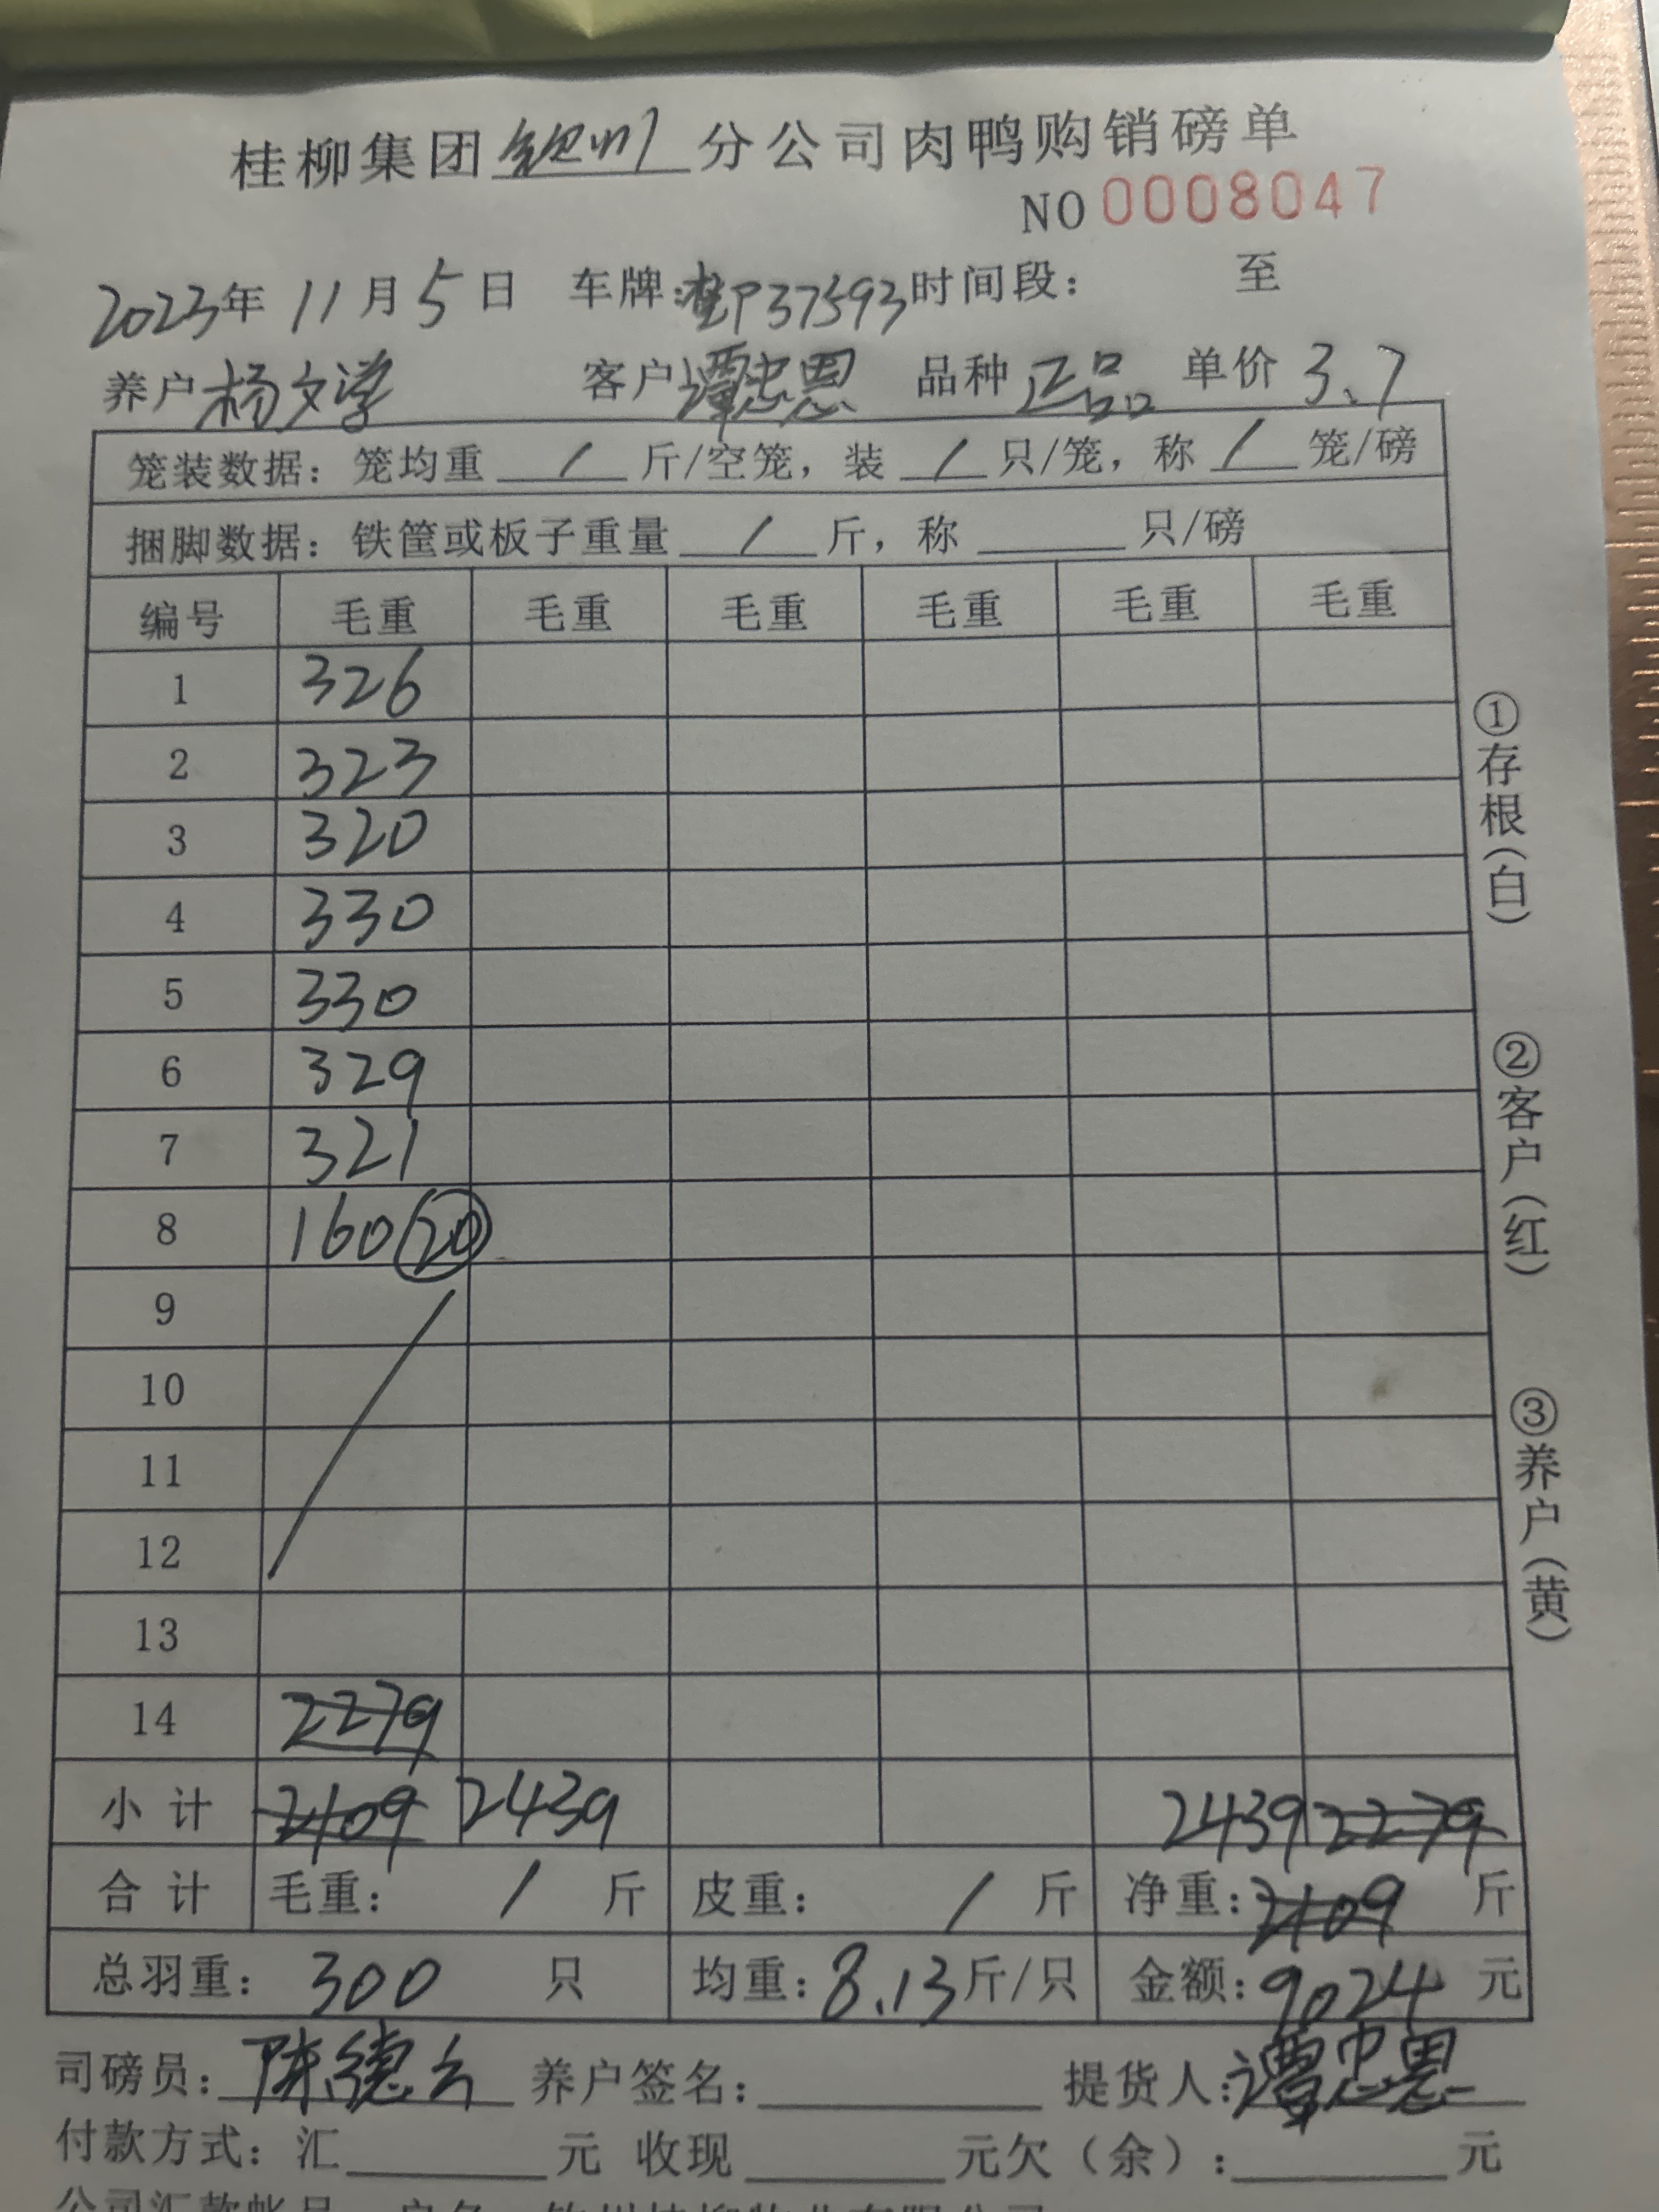 桂柳集团钦州分公司肉鸭购销磅单
NO 0008047
2023年 11月 5日 车牌:桂P37593 时间段: 至
养户 杨文学 客户 谭忠恩 品种 正品 单价 3.7
笼装数据: 笼均重 / 斤/空笼, 装 / 只/笼, 称 / 笼/磅
捆脚数据: 铁筐或板子重量 / 斤, 称 只/磅
编号 毛重 毛重 毛重 毛重 毛重 毛重
1 326
2 323
3 320
4 330
5 330
6 329
7 321
8 160 (20)
9
10
11
12
13
14 2279
小计 2109 2439 2439 2279
合计 毛重: / 斤 皮重: / 斤 净重: 2109 斤
总羽重: 300 只 均重: 8.13 斤/只 金额: 9024 元
司磅员: 陈德 养户签名: 提货人: 谭忠恩
付款方式: 汇 元 收现 元 欠(余): 元
①存根(白)
②客户(红)
③养户(黄)